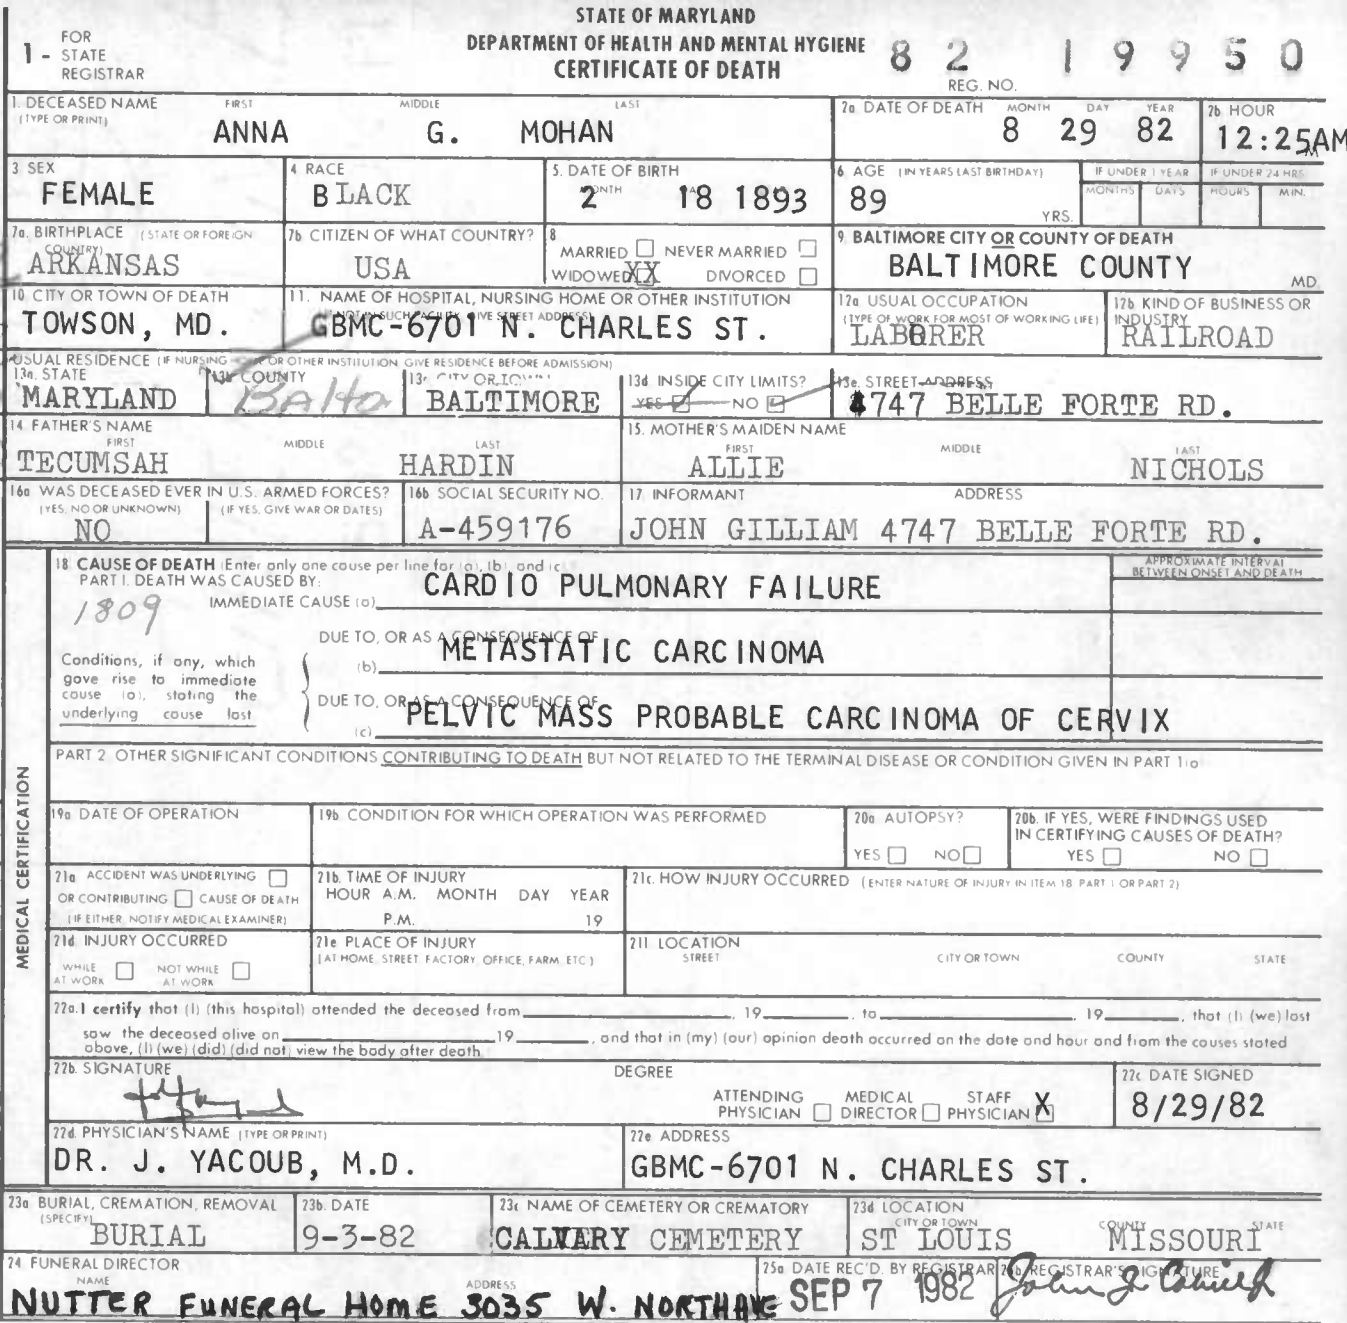 STATE OF MARYLAND
DEPARTMENT OF HEALTH AND MENTAL HYGIENE
CERTIFICATE OF DEATH
1 - FOR STATE REGISTRAR
82 19950
REG. NO.
1. DECEASED NAME (TYPE OR PRINT) FIRST MIDDLE LAST
ANNA G. MOHAN
2a DATE OF DEATH MONTH DAY YEAR
8 29 82
2b HOUR
12:25AM
3 SEX
FEMALE
4 RACE
BLACK
5. DATE OF BIRTH
2 18 1893
6 AGE (IN YEARS LAST BIRTHDAY)
89 YRS.
IF UNDER 1 YEAR
MONTHS DAYS
IF UNDER 24 HRS
HOURS MIN.
7a. BIRTHPLACE (STATE OR FOREIGN COUNTRY)
ARKANSAS
7b CITIZEN OF WHAT COUNTRY?
USA
8
MARRIED NEVER MARRIED
WIDOWED XX DIVORCED
9. BALTIMORE CITY OR COUNTY OF DEATH
BALTIMORE COUNTY MD.
10 CITY OR TOWN OF DEATH
TOWSON, MD.
11. NAME OF HOSPITAL, NURSING HOME OR OTHER INSTITUTION
GBMC-6701 N. CHARLES ST.
12a USUAL OCCUPATION
(TYPE OF WORK FOR MOST OF WORKING LIFE)
LABORER
12b KIND OF BUSINESS OR INDUSTRY
RAILROAD
USUAL RESIDENCE (IF NURSING OR OTHER INSTITUTION GIVE RESIDENCE BEFORE ADMISSION)
13a. STATE
MARYLAND
13b COUNTY
BAlto
13c CITY OR TOWN
BALTIMORE
13d INSIDE CITY LIMITS?
YES NO
13e. STREET ADDRESS
4747 BELLE FORTE RD.
14 FATHER'S NAME
FIRST MIDDLE LAST
TECUMSAH HARDIN
15. MOTHER'S MAIDEN NAME
FIRST MIDDLE LAST
ALLIE NICHOLS
16a WAS DECEASED EVER IN U.S. ARMED FORCES?
(YES, NO OR UNKNOWN) (IF YES, GIVE WAR OR DATES)
NO
16b SOCIAL SECURITY NO.
A-459176
17 INFORMANT ADDRESS
JOHN GILLIAM 4747 BELLE FORTE RD.
MEDICAL CERTIFICATION
18 CAUSE OF DEATH (Enter only one cause per line for (a), (b), and (c)
PART I. DEATH WAS CAUSED BY:
APPROXIMATE INTERVAL BETWEEN ONSET AND DEATH
1809
IMMEDIATE CAUSE (a) CARDIO PULMONARY FAILURE
DUE TO, OR AS A CONSEQUENCE OF
(b) METASTATIC CARCINOMA
Conditions, if any, which gave rise to immediate cause (a), stating the underlying cause last
DUE TO, OR AS A CONSEQUENCE OF
(c) PELVIC MASS PROBABLE CARCINOMA OF CERVIX
PART 2 OTHER SIGNIFICANT CONDITIONS CONTRIBUTING TO DEATH BUT NOT RELATED TO THE TERMINAL DISEASE OR CONDITION GIVEN IN PART 1(a
19a DATE OF OPERATION
19b CONDITION FOR WHICH OPERATION WAS PERFORMED
20a AUTOPSY?
YES NO
20b. IF YES, WERE FINDINGS USED IN CERTIFYING CAUSES OF DEATH?
YES NO
21a ACCIDENT WAS UNDERLYING
OR CONTRIBUTING CAUSE OF DEATH
(IF EITHER, NOTIFY MEDICAL EXAMINER)
21b. TIME OF INJURY
HOUR A.M. MONTH DAY YEAR
P.M. 19
21c. HOW INJURY OCCURRED (ENTER NATURE OF INJURY IN ITEM 18 PART 1 OR PART 2)
21d INJURY OCCURRED
WHILE AT WORK NOT WHILE AT WORK
21e PLACE OF INJURY
(AT HOME, STREET, FACTORY, OFFICE, FARM, ETC)
21f LOCATION
STREET CITY OR TOWN COUNTY STATE
22a. I certify that (I) (this hospital) attended the deceased from , 19 , to , 19 , that (I) (we) last
saw the deceased alive on 19 , and that in (my) (our) opinion death occurred on the date and hour and from the causes stated
above, (I) (we) (did) (did not) view the body after death
22b. SIGNATURE
DEGREE
ATTENDING PHYSICIAN MEDICAL DIRECTOR STAFF PHYSICIAN X
22c DATE SIGNED
8/29/82
22d. PHYSICIAN'S NAME (TYPE OR PRINT)
DR. J. YACOUB, M.D.
22e ADDRESS
GBMC-6701 N. CHARLES ST.
23a BURIAL, CREMATION, REMOVAL (SPECIFY)
BURIAL
23b. DATE
9-3-82
23c NAME OF CEMETERY OR CREMATORY
CALVARY CEMETERY
23d LOCATION
CITY OR TOWN COUNTY STATE
ST LOUIS MISSOURI
24 FUNERAL DIRECTOR
NAME ADDRESS
NUTTER FUNERAL HOME 3035 W. NORTH AVE
25a DATE REC'D. BY REGISTRAR
SEP 7 1982
25b REGISTRAR'S SIGNATURE